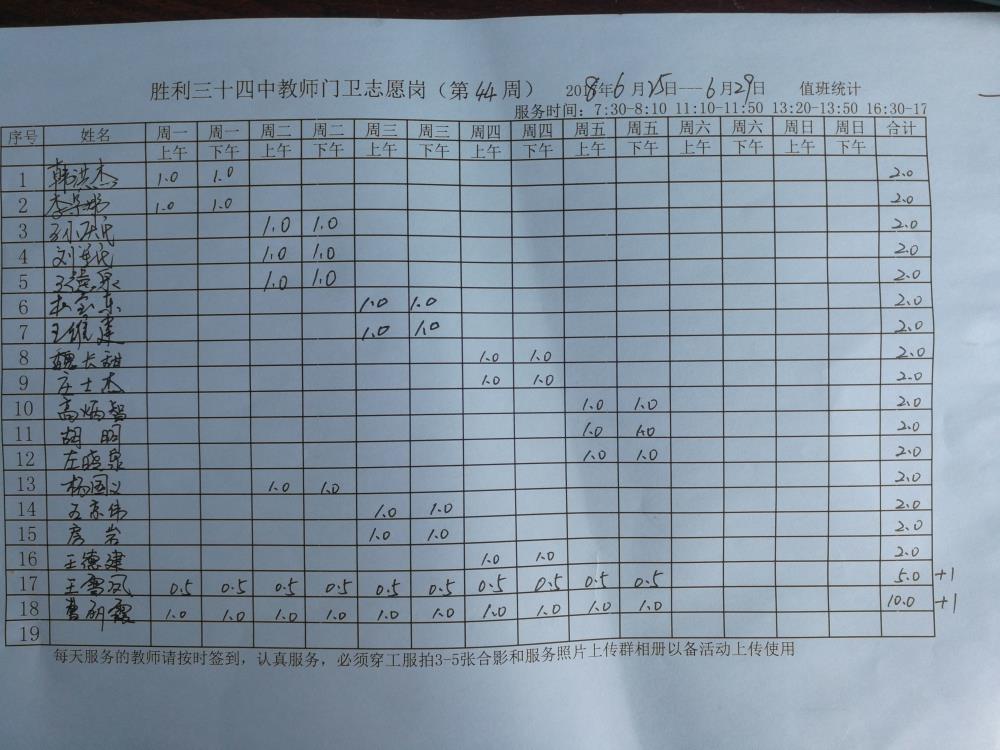 胜利三十四中教师门卫志愿岗（第44周） 2018年6月25日---6月29日 值班统计
服务时间：7:30-8:10 11:10-11:50 13:20-13:50 16:30-17
序号 姓名 周一 周一 周二 周二 周三 周三 周四 周四 周五 周五 周六 周六 周日 周日 合计
上午 下午 上午 下午 上午 下午 上午 下午 上午 下午 上午 下午 上午 下午
1 韩洪杰 1.0 1.0 2.0
2 1.0 1.0 2.0
3 1.0 1.0 2.0
4 1.0 1.0 2.0
5 1.0 1.0 2.0
6 1.0 1.0 2.0
7 王维建 1.0 1.0 2.0
8 魏长甜 1.0 1.0 2.0
9 庄士杰 1.0 1.0 2.0
10 高炳智 1.0 1.0 2.0
11 胡明 1.0 1.0 2.0
12 左晓泉 1.0 1.0 2.0
13 杨国义 1.0 1.0 2.0
14 1.0 1.0 2.0
15 房岩 1.0 1.0 2.0
16 王德建 1.0 1.0 2.0
17 王雪凤 0.5 0.5 0.5 0.5 0.5 0.5 0.5 0.5 0.5 0.5 5.0 +1
18 曹研霞 1.0 1.0 1.0 1.0 1.0 1.0 1.0 1.0 1.0 1.0 10.0 +1
19
每天服务的教师请按时签到，认真服务，必须穿工服拍3-5张合影和服务照片上传群相册以备活动上传使用